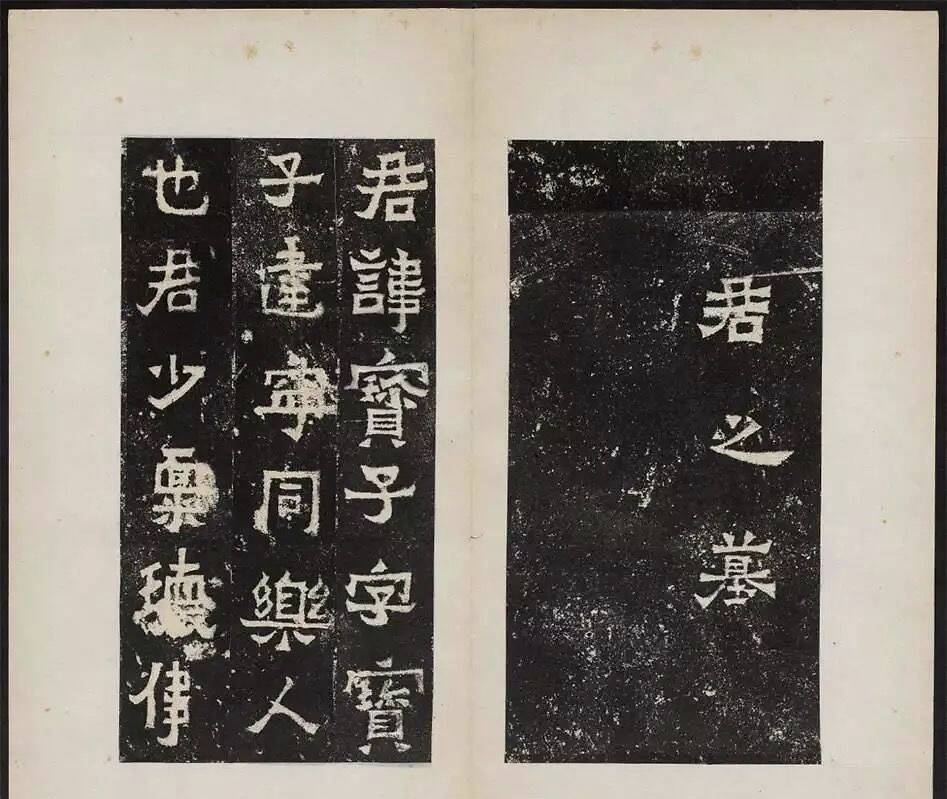 君之墓
君諱寶子字寶
子建寧同樂人
也君少稟瓌偉